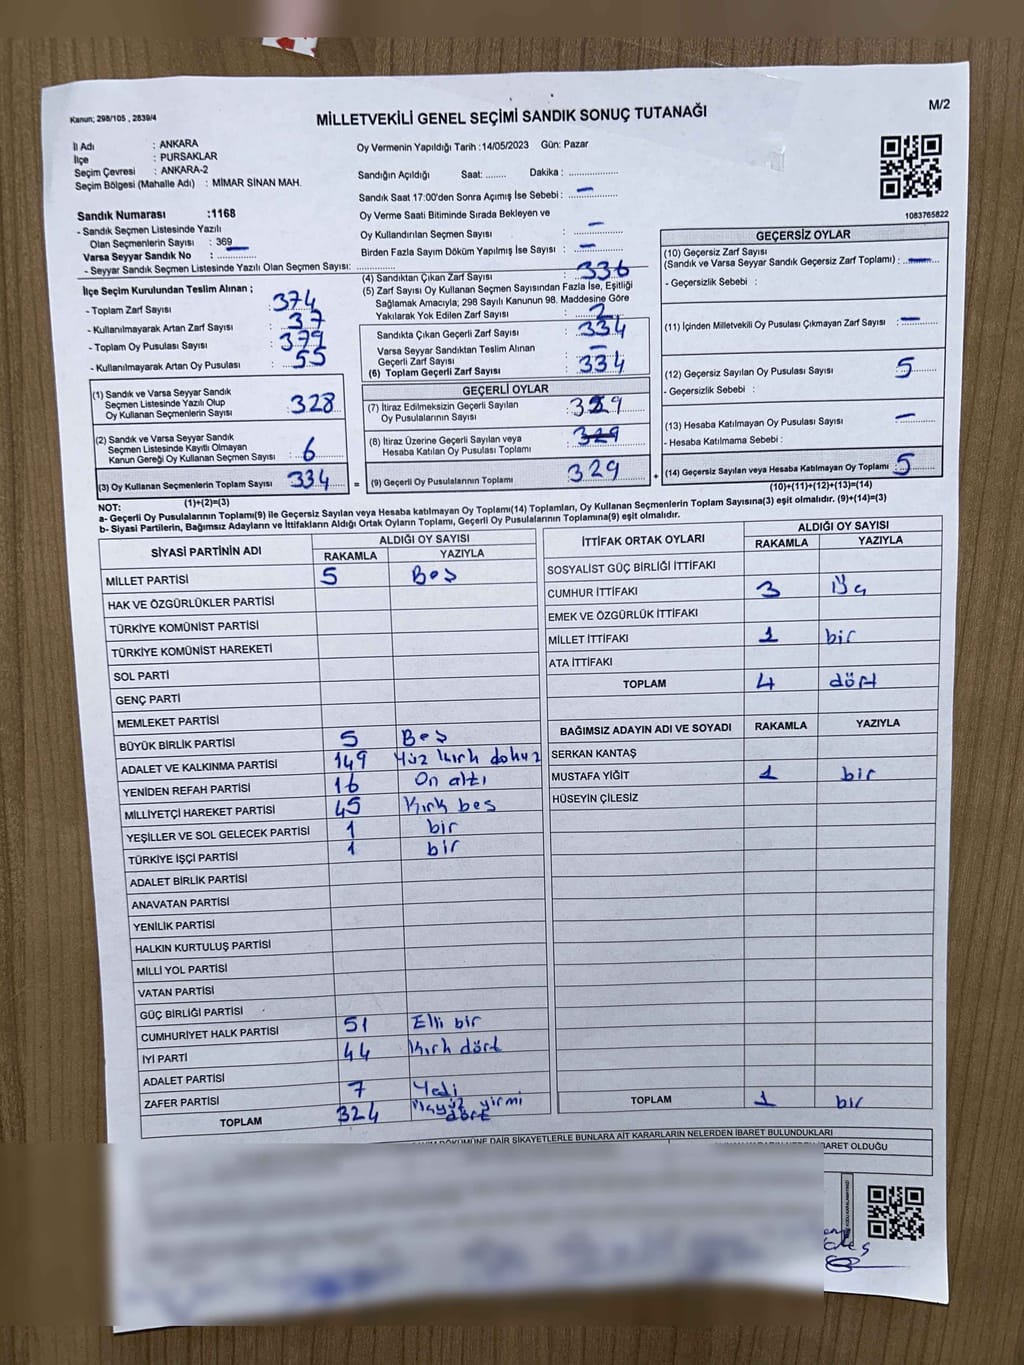 Kanun; 298/105 , 2839/4
MİLLETVEKİLİ GENEL SEÇİMİ SANDIK SONUÇ TUTANAĞI
M/2
İl Adı : ANKARA
İlçe : PURSAKLAR
Seçim Çevresi : ANKARA-2
Seçim Bölgesi (Mahalle Adı) : MİMAR SİNAN MAH.
Sandık Numarası :1168
- Sandık Seçmen Listesinde Yazılı
Olan Seçmenlerin Sayısı : 369
Varsa Seyyar Sandık No : ..............
- Seyyar Sandık Seçmen Listesinde Yazılı Olan Seçmen Sayısı: ..............
Oy Vermenin Yapıldığı Tarih :14/05/2023 Gün: Pazar
Sandığın Açıldığı Saat: ....... Dakika : ..............
Sandık Saat 17:00'den Sonra Açımış İse Sebebi : —
Oy Verme Saati Bitiminde Sırada Bekleyen ve
Oy Kullandırılan Seçmen Sayısı : —
Birden Fazla Sayım Döküm Yapılmış İse Sayısı : —
1083765822
İlçe Seçim Kurulundan Teslim Alınan ;
- Toplam Zarf Sayısı : 374
- Kullanılmayarak Artan Zarf Sayısı : 37
- Toplam Oy Pusulası Sayısı : 379
- Kullanılmayarak Artan Oy Pusulası : 55
(1) Sandık ve Varsa Seyyar Sandık
Seçmen Listesinde Yazılı Olup
Oy Kullanan Seçmenlerin Sayısı : 328
(2) Sandık ve Varsa Seyyar Sandık
Seçmen Listesinde Kayıtlı Olmayan
Kanun Gereği Oy Kullanan Seçmen Sayısı : 6
(3) Oy Kullanan Seçmenlerin Toplam Sayısı : 334
(1)+(2)=(3)
(4) Sandıktan Çıkan Zarf Sayısı : 336
(5) Zarf Sayısı, Oy Kullanan Seçmen Sayısından Fazla İse, Eşitliği
Sağlamak Amacıyla; 298 Sayılı Kanunun 98. Maddesine Göre
Yakılarak Yok Edilen Zarf Sayısı : 2
Sandıkta Çıkan Geçerli Zarf Sayısı : 334
Varsa Seyyar Sandıktan Teslim Alınan
Geçerli Zarf Sayısı : —
(6) Toplam Geçerli Zarf Sayısı : 334
GEÇERLİ OYLAR
(7) İtiraz Edilmeksizin Geçerli Sayılan
Oy Pusulalarının Sayısı : 329
(8) İtiraz Üzerine Geçerli Sayılan veya
Hesaba Katılan Oy Pusulası Toplamı : 329
= (9) Geçerli Oy Pusulalarının Toplamı : 329 +
GEÇERSİZ OYLAR
(10) Geçersiz Zarf Sayısı
(Sandık ve Varsa Seyyar Sandık Geçersiz Zarf Toplamı) : —
- Geçersizlik Sebebi :
(11) İçinden Milletvekili Oy Pusulası Çıkmayan Zarf Sayısı : —
(12) Geçersiz Sayılan Oy Pusulası Sayısı : 5
- Geçersizlik Sebebi :
(13) Hesaba Katılmayan Oy Pusulası Sayısı : —
- Hesaba Katılmama Sebebi :
(14) Geçersiz Sayılan veya Hesaba Katılmayan Oy Toplamı : 5
(10)+(11)+(12)+(13)=(14)
NOT:
a- Geçerli Oy Pusulalarının Toplamı(9) ile Geçersiz Sayılan veya Hesaba katılmayan Oy Toplamı(14) Toplamları, Oy Kullanan Seçmenlerin Toplam Sayısına(3) eşit olmalıdır. (9)+(14)=(3)
b- Siyasi Partilerin, Bağımsız Adayların ve İttifakların Aldığı Ortak Oyların Toplamı, Geçerli Oy Pusulalarının Toplamına(9) eşit olmalıdır.
SİYASİ PARTİNİN ADI ALDIĞI OY SAYISI
RAKAMLA YAZIYLA
MİLLET PARTİSİ 5 Beş
HAK VE ÖZGÜRLÜKLER PARTİSİ
TÜRKİYE KOMÜNİST PARTİSİ
TÜRKİYE KOMÜNİST HAREKETİ
SOL PARTİ
GENÇ PARTİ
MEMLEKET PARTİSİ
BÜYÜK BİRLİK PARTİSİ 5 Beş
ADALET VE KALKINMA PARTİSİ 149 Yüz kırk dokuz
YENİDEN REFAH PARTİSİ 16 On altı
MİLLİYETÇİ HAREKET PARTİSİ 45 Kırk beş
YEŞİLLER VE SOL GELECEK PARTİSİ 1 bir
TÜRKİYE İŞÇİ PARTİSİ 1 bir
ADALET BİRLİK PARTİSİ
ANAVATAN PARTİSİ
YENİLİK PARTİSİ
HALKIN KURTULUŞ PARTİSİ
MİLLİ YOL PARTİSİ
VATAN PARTİSİ
GÜÇ BİRLİĞİ PARTİSİ
CUMHURİYET HALK PARTİSİ 51 Elli bir
İYİ PARTİ 44 Kırk dört
ADALET PARTİSİ
ZAFER PARTİSİ 7 Yedi
TOPLAM 324 Üçyüz yirmi dört
İTTİFAK ORTAK OYLARI ALDIĞI OY SAYISI
RAKAMLA YAZIYLA
SOSYALİST GÜÇ BİRLİĞİ İTTİFAKI
CUMHUR İTTİFAKI 3 Üç
EMEK VE ÖZGÜRLÜK İTTİFAKI
MİLLET İTTİFAKI 1 bir
ATA İTTİFAKI
TOPLAM 4 dört
BAĞIMSIZ ADAYIN ADI VE SOYADI RAKAMLA YAZIYLA
SERKAN KANTAŞ
MUSTAFA YİĞİT 1 bir
HÜSEYİN ÇİLESİZ
TOPLAM 1 bir
DÖKÜMÜNE DAİR ŞİKAYETLERLE BUNLARA AİT KARARLARIN NELERDEN İBARET BULUNDUKLARI
İBARET OLDUĞU